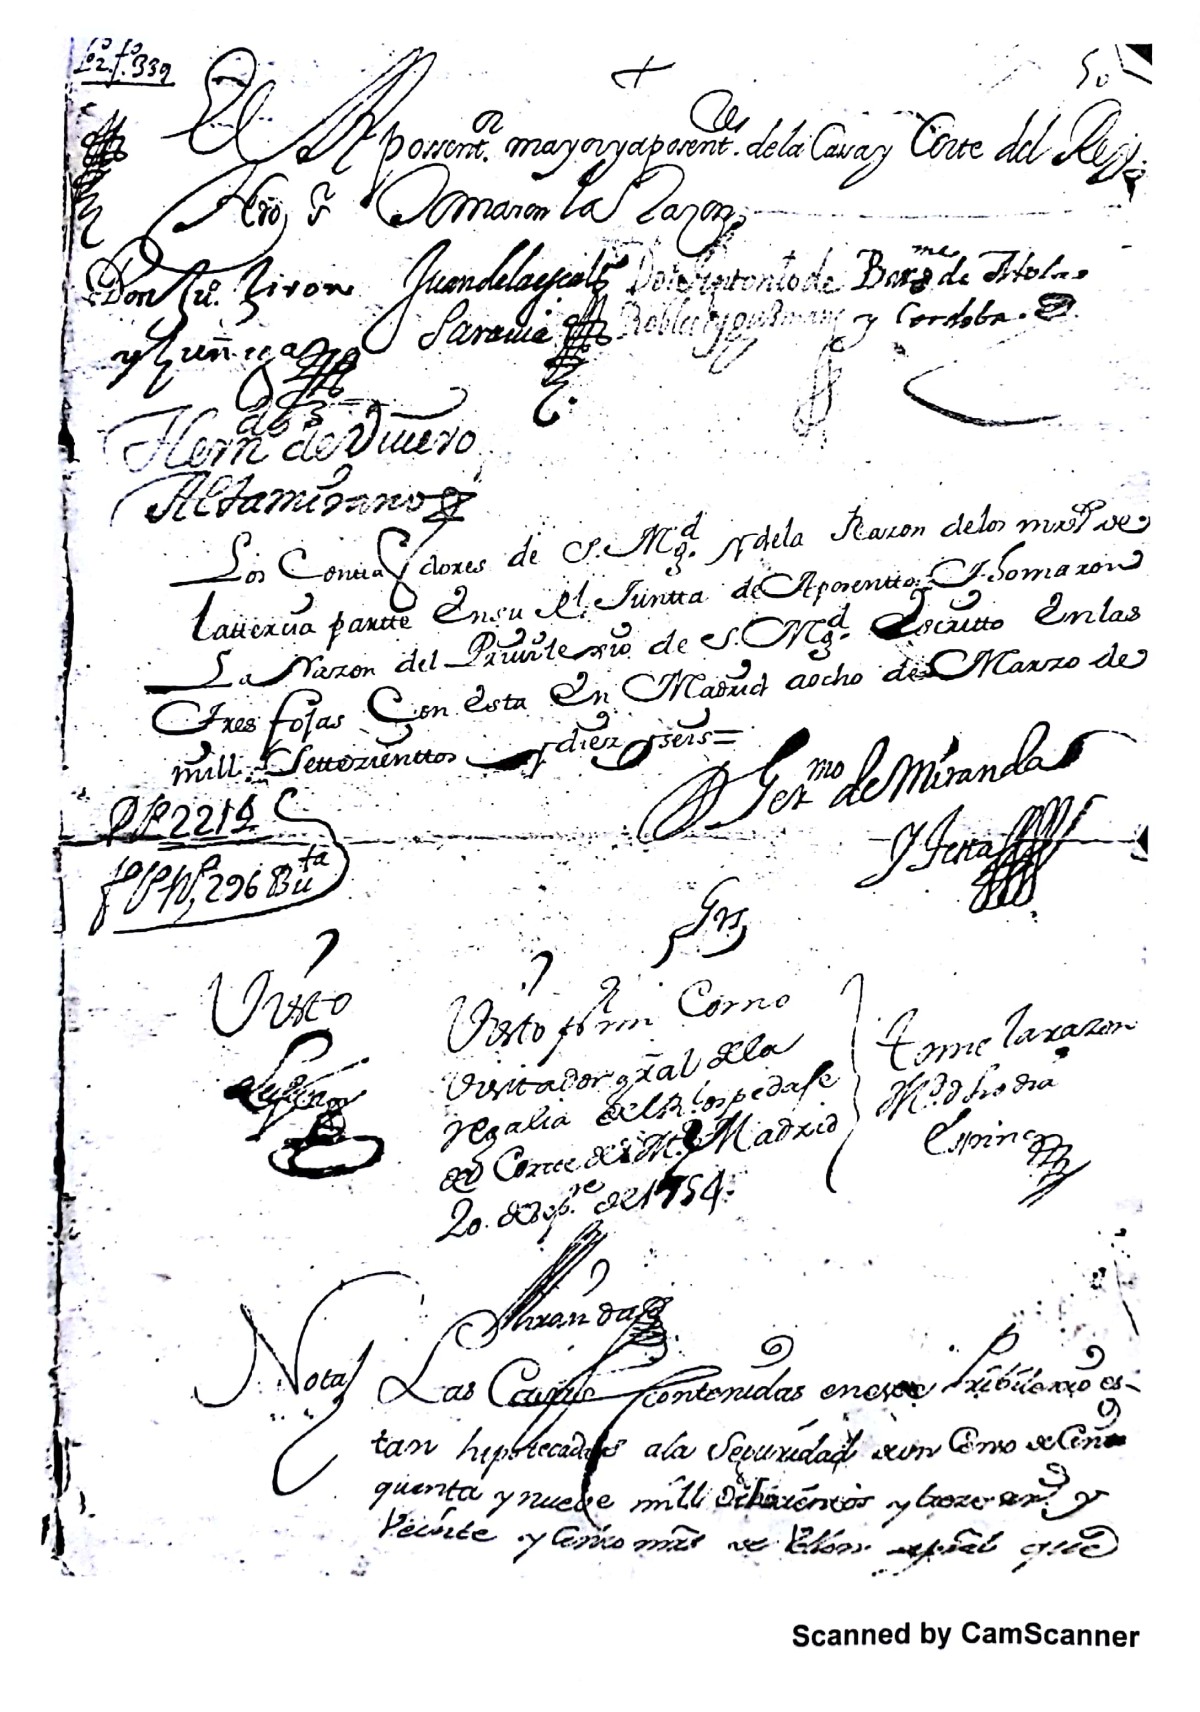 Lo 2. fo 339
50
El Aposent.or mayor y aposent.es de la Casa y Corte del Rey
Nro. Sr Tomaron la Razon
Don Ju.o Jiron Juan de la escal Don Antonio de Bar.me de Atola
y Zuñiga Saravia Robles y guzman y Cordoba.
Hern.do de Vivero
Altamirano
Los Contadores de S. Mg.d y de la Razon de los mrs de
la tercia partte En su Rl. Juntta de Aposentto Thomaron
La Razon del Privilexio de S. Mg.d Escritto En las
Tres fojas Con Esta En Madrid a ocho de Marzo de
mill Settezienttos y diez y seis=
2219
Ger.mo de Miranda
y Testa
296 Bta
Grs
Visto
Visto por mi Como
Visitador gral de la
regalia del Rl. ospedaje
de Corte de S. M. Madrid
20. de Sep.re de 1754.
Tome la razon
M.d ho dia
Espino
Miranda
Nota Las Casas contenidas en este Pribilexio es-
tan hipotecadas a la Seguridad de un Censo de Cin
quenta y nueve mill ochozientos y treze rs. y
Veinte y Cinco mrs de Vellon de pral que
Scanned by CamScanner